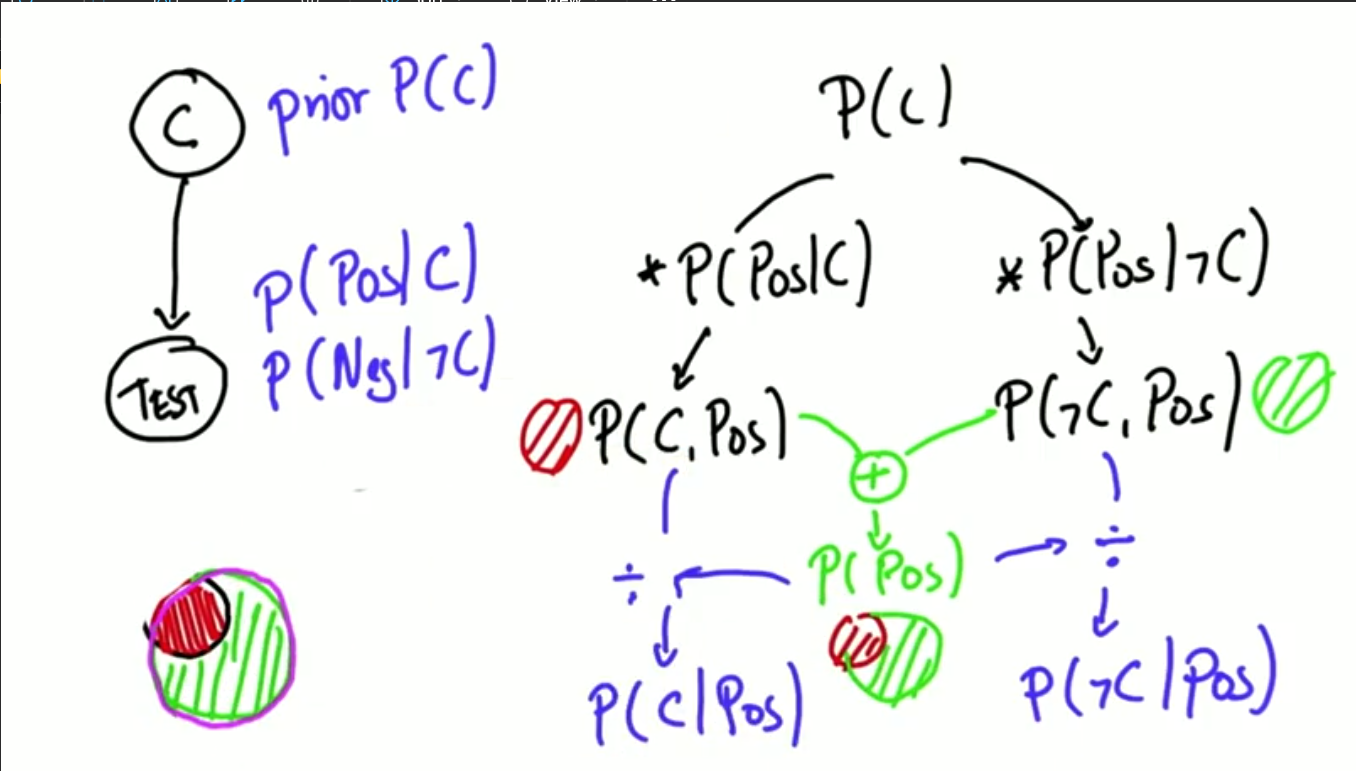 C
prior P(C)
P(Pos|C)
P(Neg|¬C)
TEST
P(C)
* P(Pos|C)
* P(Pos|¬C)
P(C, Pos)
P(¬C, Pos)
+
P(Pos)
÷
÷
P(C|Pos)
P(¬C|Pos)